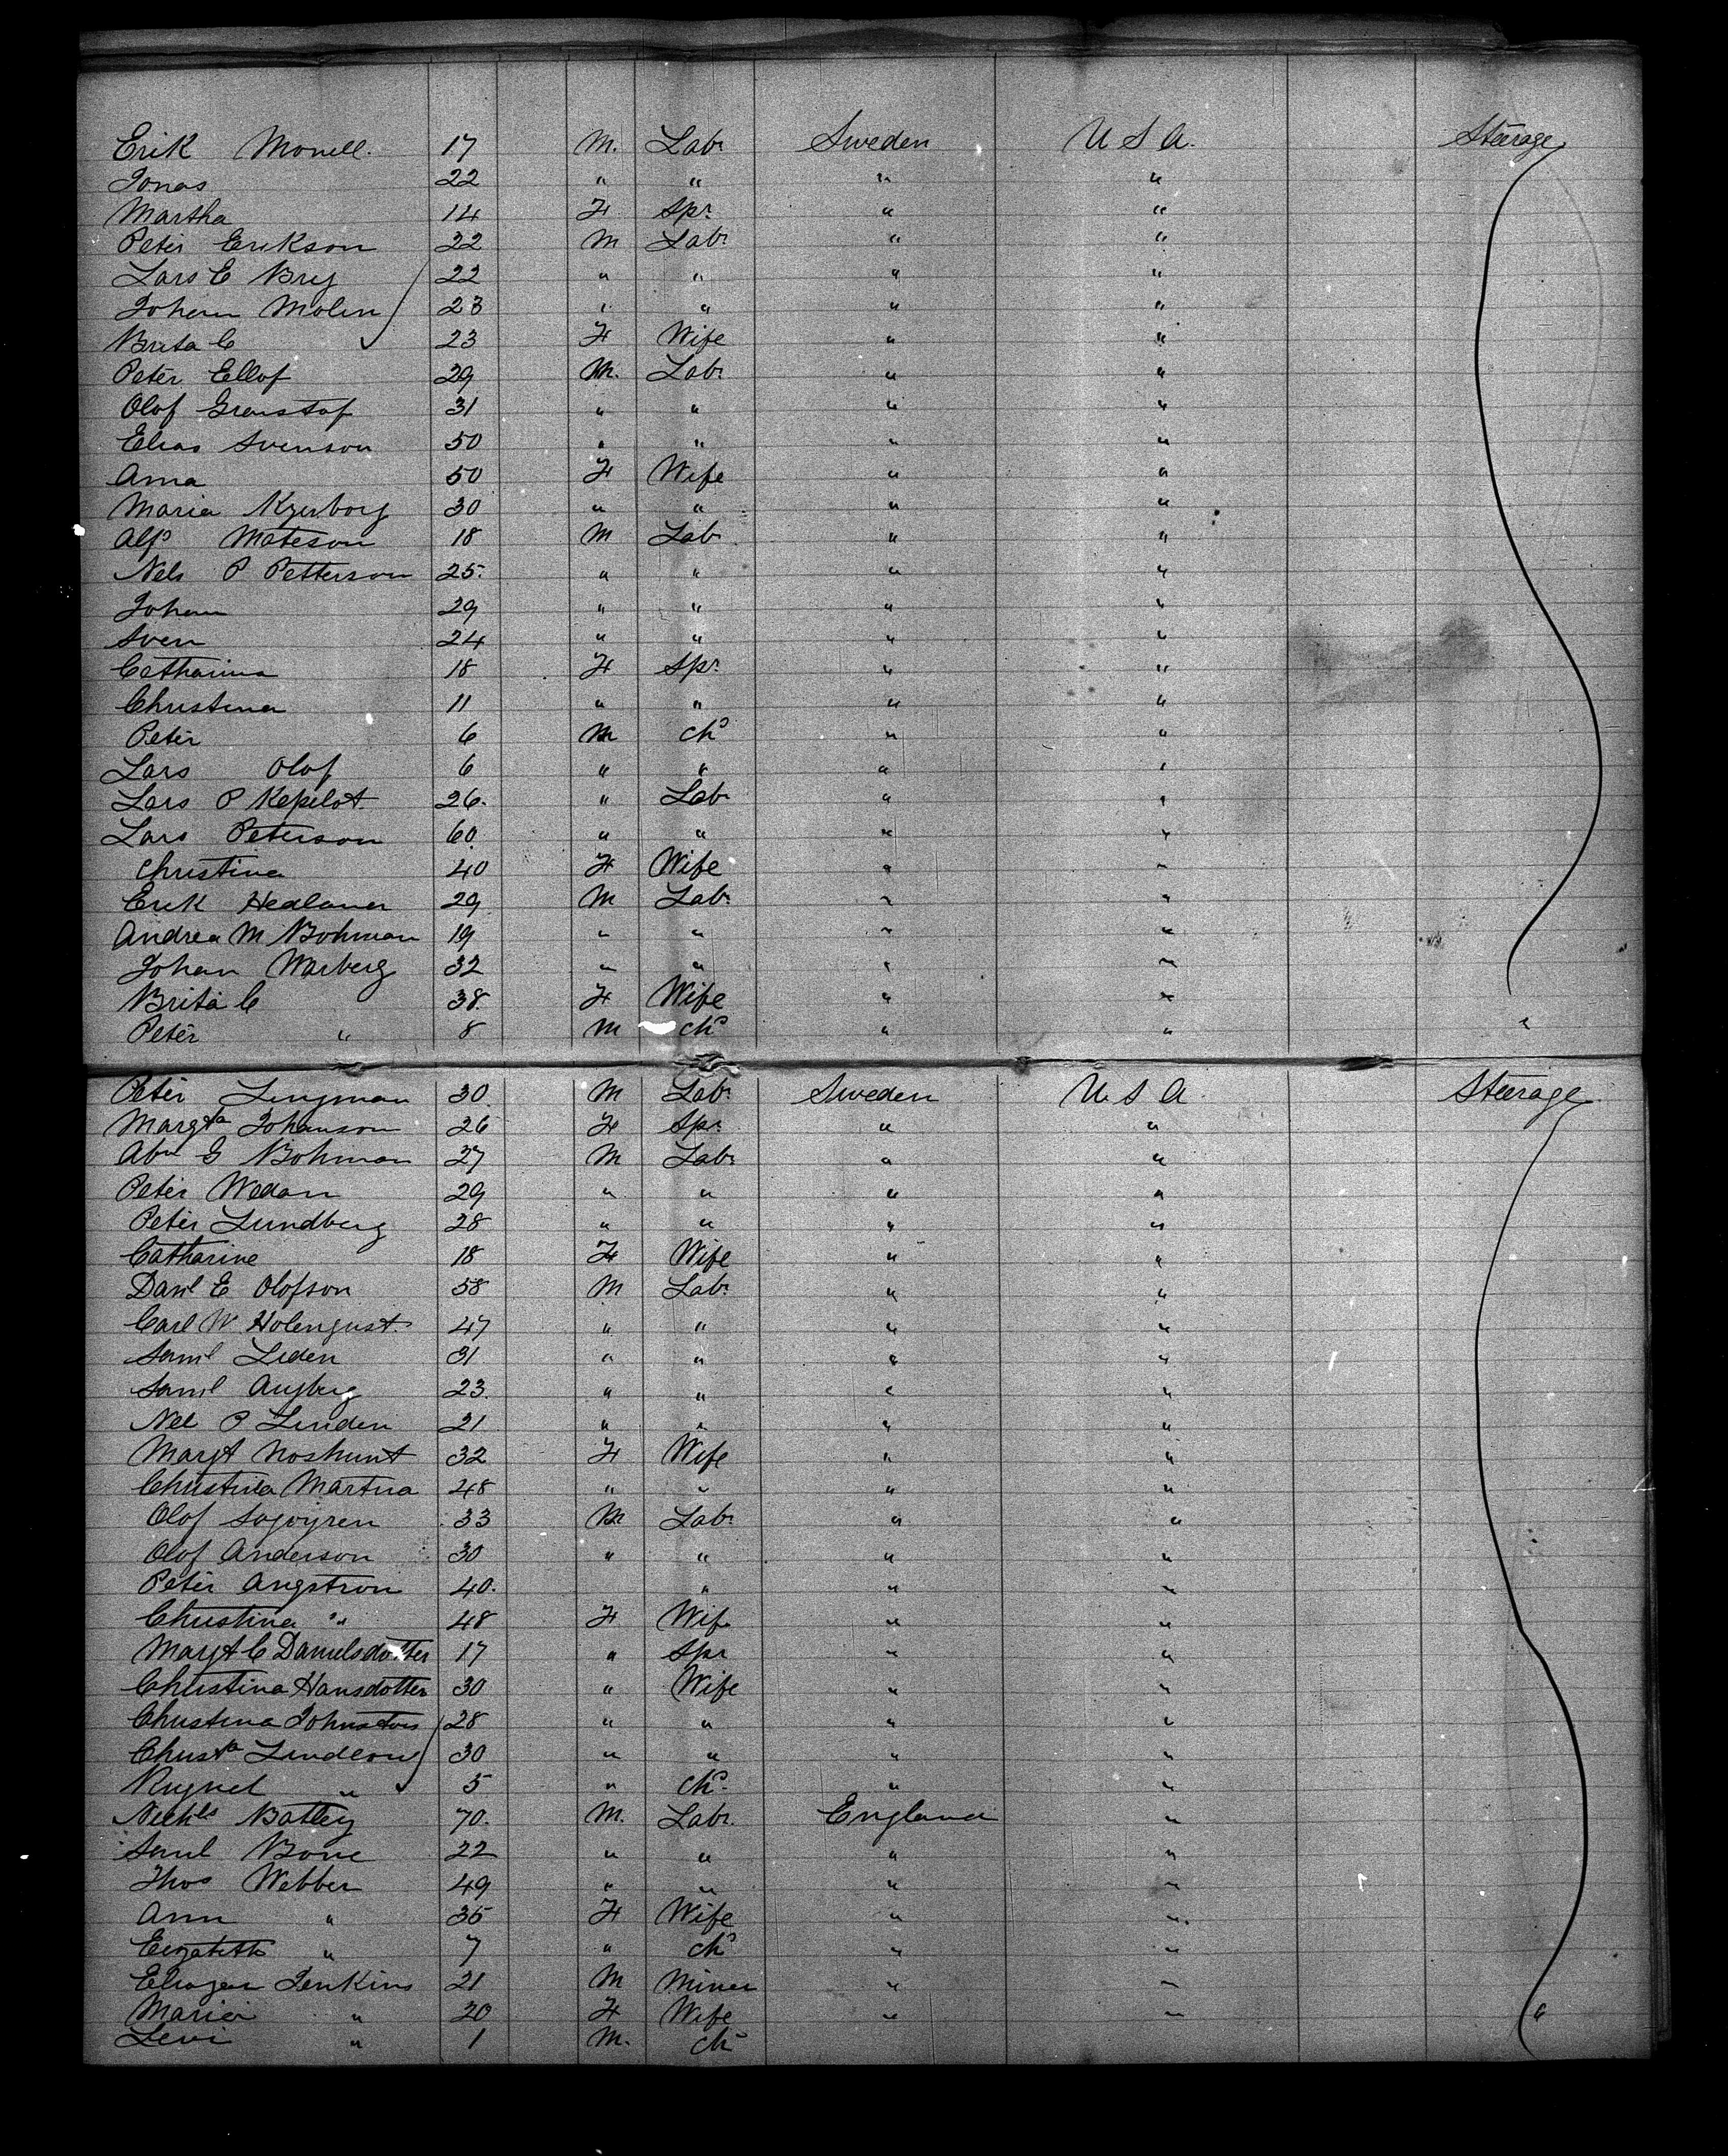 Erik Monell. 17 M. Labr Sweden U S A. Steerage
Jonas 22 " " " "
Martha 14 F Spr " "
Peter Erikson 22 M Labr " "
Lars E Brej 22 " " " "
Johan Molin 23 " " " "
Brita C 23 F Wife " "
Peter Ellof 29 M. Labr " "
Olof Granstof 31 " " " "
Elias Svenson 50 " " " "
Anna 50 F Wife " "
Maria 30 " " " "
Alfd Mateson 18 M Labr " "
Nels P Petterson 25. " " " "
Johan 29 " " " "
Sven 24 " " " "
Catharina 18 F Spr " "
Christina 11 " " " "
Peter 6 M chd " "
Lars Olof 6 " " " "
Lars P Kepilot 26. " Labr " "
Lars Peterson 60. " " " "
Christina 40 F Wife " "
Erik Hedlaner 29 M Labr " "
Andrea M Bohman 19 " " " "
Johan Warberg 32 " " " "
Brita C 38. F Wife " "
Peter " 8 M chd " " "
Peter Lingman 30. M Labr Sweden U S A. Steerage
Margta Johanson 26 F Spr " "
Abm G Bohman 27 M Labr " "
Peter Wedan 29 " " " "
Peter Lundberg 28 " " " "
Catharine 18 F Wife " "
Danl E Olofson 58 M Labr " "
Carl W Holenqust. 47 " " " "
Saml Liden 31 " " " "
Saml Augberg 23. " " " "
Nel P Linden 21 " " " "
Margt Noshunt 32 F Wife " "
Christina Martna 48 " " " "
Olof 33 M Labr " "
Olof Anderson 30 " " " "
Peter Angstron 40. " " "
Christina " 48 F Wife " "
Margt C Danielsdotter 17 " Spr " "
Christina Hansdotter 30 " Wife " "
Christina 28 " " " "
Christa 30 " " " "
" 5 " chd " "
Nichls Batley 70. M. Labr. England "
Saml Bone 22 " " " "
Thos Webber 49 " " " "
Ann " 35 F Wife " "
Elizabeth " 7 " chd " "
Jenkins 21 M Miner " "
Maria " 20 F Wife " " "
Levi " 1 M. chd